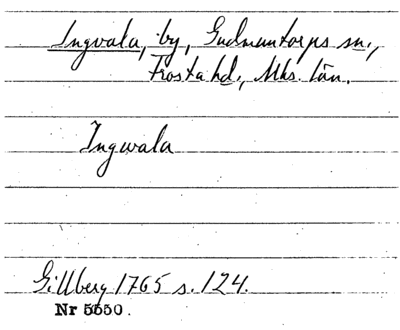 Ingvala, by, Gudmuntorps sn.,
Frosta hd., Mhs. län.
Ingwala
Gillberg 1765 s. 124.
Nr 5550.